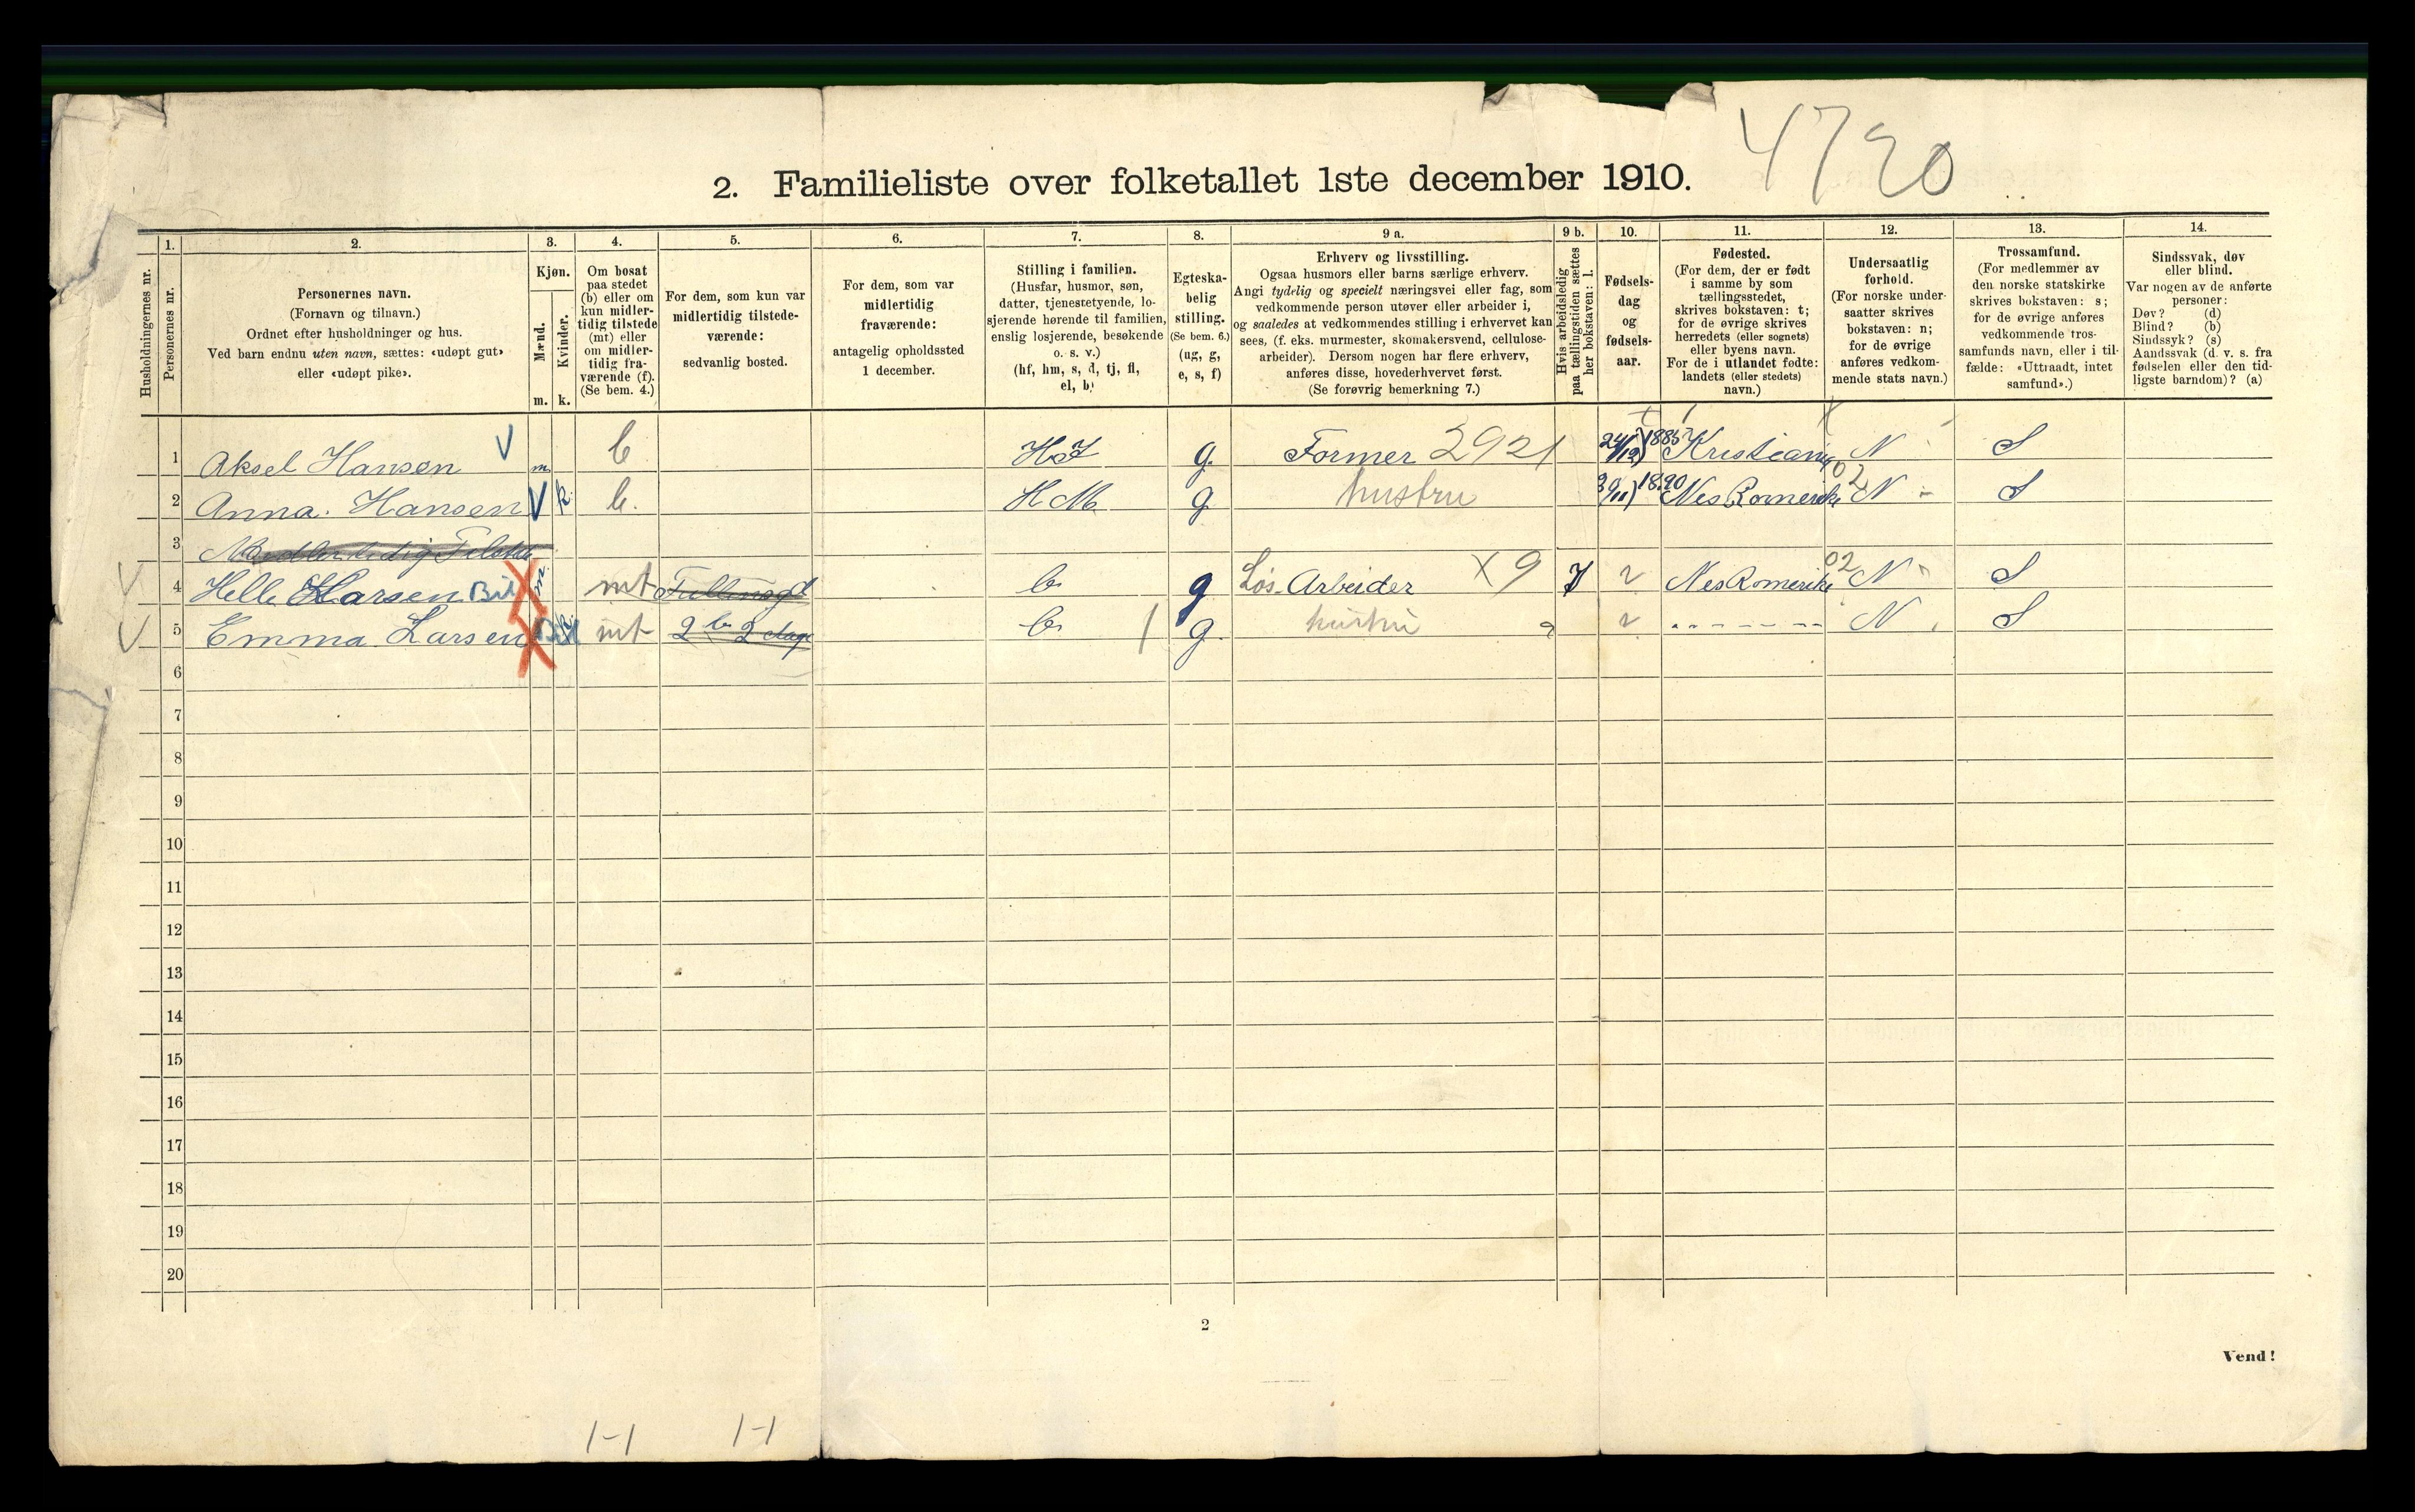 4790
2. Familieliste over folketallet 1ste december 1910.
Husholdningernes nr.
1.
Personernes nr.
2.
Personernes navn.
(Fornavn og tilnavn.)
Ordnet efter husholdninger og hus.
Ved barn endnu uten navn, sættes: «udøpt gut»
eller «udøpt pike».
3.
Kjøn.
Mænd.
Kvinder.
m. k.
4.
Om bosat
paa stedet
(b) eller om
kun midler-
tidig tilstede
(mt) eller
om midler-
tidig fra-
værende (f).
(Se bem. 4.)
5.
For dem, som kun var
midlertidig tilstede-
værende:
sedvanlig bosted.
6.
For dem, som var
midlertidig
fraværende:
antagelig opholdssted
1 december.
7.
Stilling i familien.
(Husfar, husmor, søn,
datter, tjenestetyende, lo-
sjerende hørende til familien,
enslig losjerende, besøkende
o. s. v.)
(hf, hm, s, d, tj, fl,
el, b)
8.
Egteska-
belig
stilling.
(Se bem. 6.)
(ug, g,
e, s, f)
9 a.
Erhverv og livsstilling.
Ogsaa husmors eller barns særlige erhverv.
Angi tydelig og specielt næringsvei eller fag, som
vedkommende person utøver eller arbeider i,
og saaledes at vedkommendes stilling i erhvervet kan
sees, (f. eks. murmester, skomakersvend, cellulose-
arbeider). Dersom nogen har flere erhverv,
anføres disse, hovederhvervet først.
(Se forøvrig bemerkning 7.)
9 b.
Hvis arbeidsledig
paa tællingstiden sættes
her bokstaven: l.
10.
Fødsels-
dag
og
fødsels-
aar.
11.
Fødested.
(For dem, der er født
i samme by som
tællingsstedet,
skrives bokstaven: t;
for de øvrige skrives
herredets (eller sognets)
eller byens navn.
For de i utlandet fødte:
landets (eller stedets)
navn.)
12.
Undersaatlig
forhold.
(For norske under-
saatter skrives
bokstaven: n;
for de øvrige
anføres vedkom-
mende stats navn.)
13.
Trossamfund.
(For medlemmer av
den norske statskirke
skrives bokstaven: s;
for de øvrige anføres
vedkommende tros-
samfunds navn, eller i til-
fælde: «Uttraadt, intet
samfund».)
14.
Sindssvak, døv
eller blind.
Var nogen av de anførte
personer:
Døv? (d)
Blind? (b)
Sindssyk? (s)
Aandssvak (d. v. s. fra
fødselen eller den tid-
ligste barndom)? (a)
1 Aksel Hansen m b H.F g. Former 2921 24/12 1885 Kristiania N S
2 Anna. Hansen k b. H M g hustru 1890 Nes Romerike 02 N S
3
4 Helle Larsen m mt b g Løs Arbeider X 9 Nes Romerike 02 N S
5 Emma Larsen k mt 2 b 2 dage b g. hustru N S
6
7
8
9
10
11
12
13
14
15
16
17
18
19
20
2
Vend!
1-1 1-1